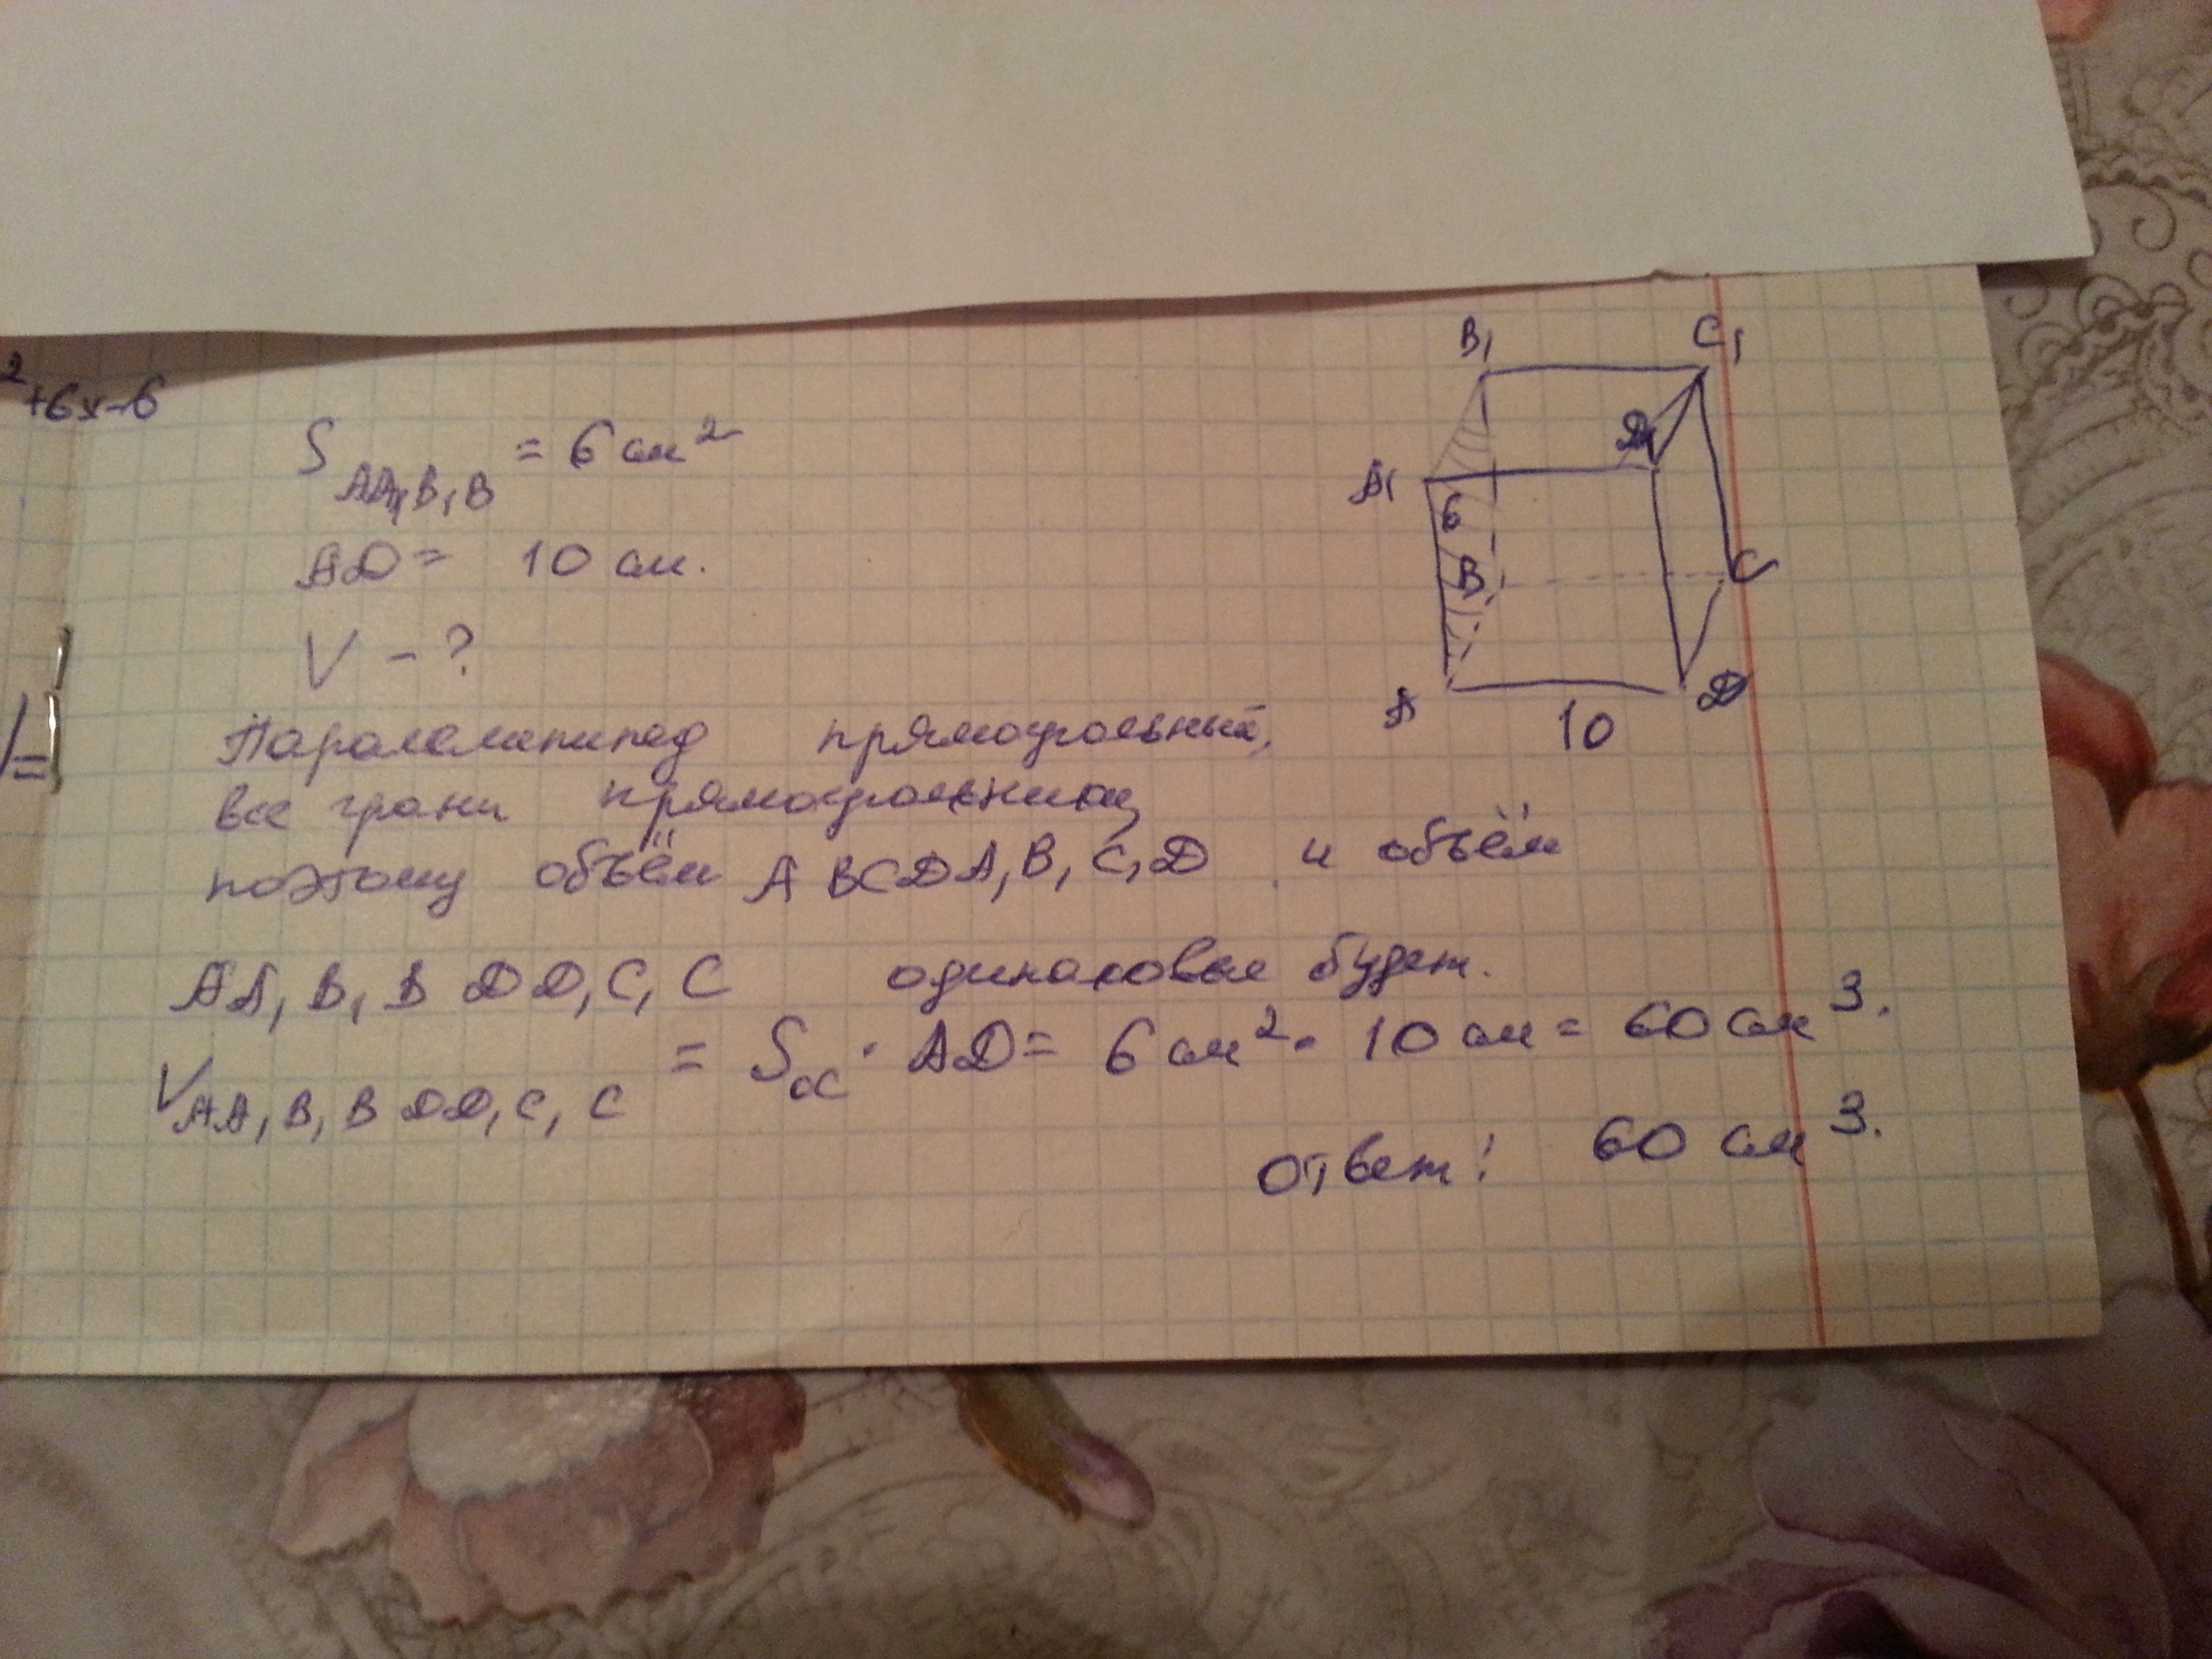 ²+6x-6
S AA₁B₁B = 6 см²
AD = 10 см.
V - ?
B₁ C₁
D₁
A₁
6
B C
A D
10
Паралелепипед прямоугольный,
все грани прямоугольники
поэтому объём ABCDA₁B₁C₁D и объём
AA₁B₁BDD₁C₁C одинаковые будет.
V AA₁B₁BDD₁C₁C = Sос · AD = 6 см² · 10 см = 60 см³.
ответ: 60 см³.